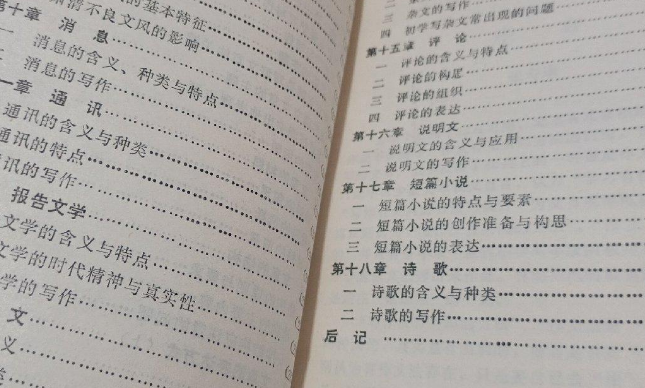 的基本特征
肃清不良文风的影响
第十章 消息
一 消息的含义、种类与特点
二 消息的写作
一章 通讯
通讯的含义与种类
通讯的特点
讯的写作
报告文学
文学的含义与特点
文学的时代精神与真实性
学的写作
文
义
二 杂文的写作
四 初学写杂文常出现的问题
第十五章 评论
一 评论的含义与特点
二 评论的构思
三 评论的组织
四 评论的表达
第十六章 说明文
一 说明文的含义与应用
二 说明文的写作
第十七章 短篇小说
一 短篇小说的特点与要素
二 短篇小说的创作准备与构思
三 短篇小说的表达
第十八章 诗歌
一 诗歌的含义与种类
二 诗歌的写作
后记